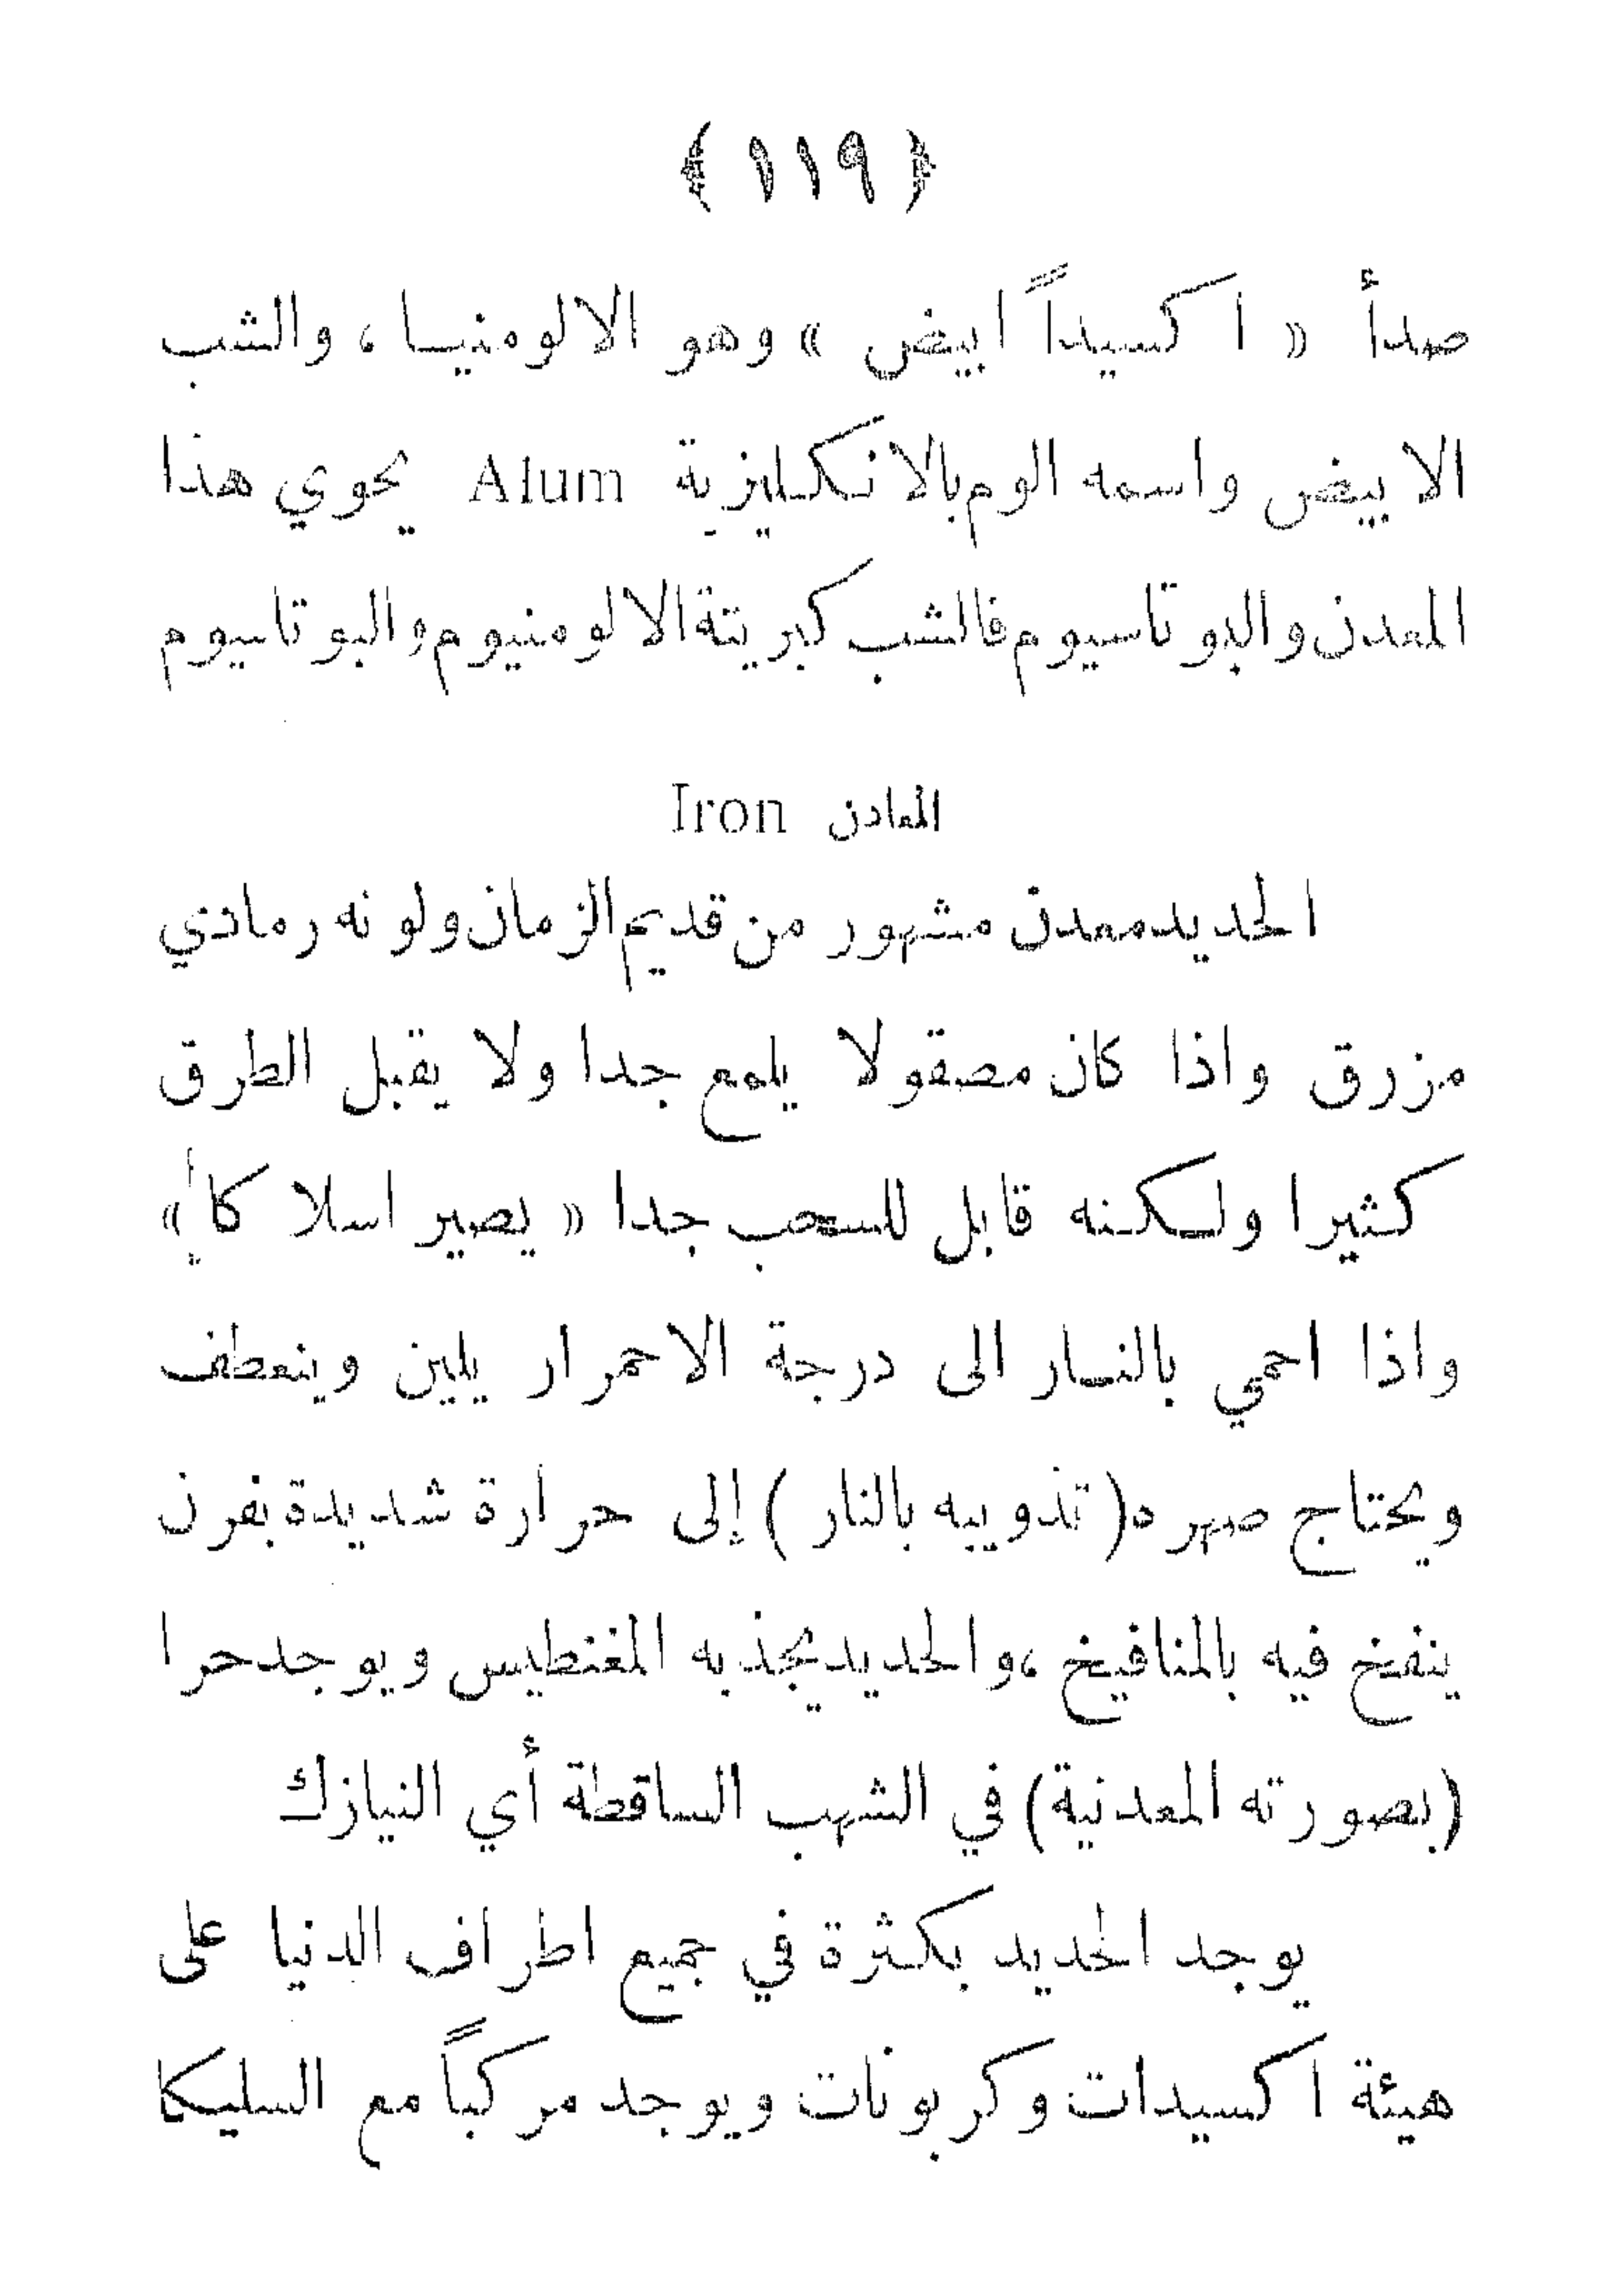 ﴿ ١١٩ ﴾
صدأ « اكسيداً ابيض » وهو الالومنيا ، والشب
الابيض واسمه الوم بالانكليزية Alum يحوي هذا
المعدن والبوتاسيوم فالشب كبريتة الالومنيوم والبوتاسيوم
المعادن Iron
الحديد معدن مشهور من قديم الزمان ولونه رمادي
مزرق واذا كان مصقولا يلمع جدا ولا يقبل الطرق
كثيرا ولكنه قابل للسحب جدا « يصير اسلاكا »
واذا احمي بالنار الى درجة الاحمرار يلين وينعطف
ويحتاج صهره ( تذويبه بالنار ) إلى حرارة شديدة بفرن
ينفخ فيه بالمنافيخ ، والحديد يجذبه المغنطيس ويوجد حرا
(بصورته المعدنية) في الشهب الساقطة أي النيازك
يوجد الحديد بكثرة في جميع اطراف الدنيا على
هيئة اكسيدات وكربونات ويوجد مركباً مع السليكا